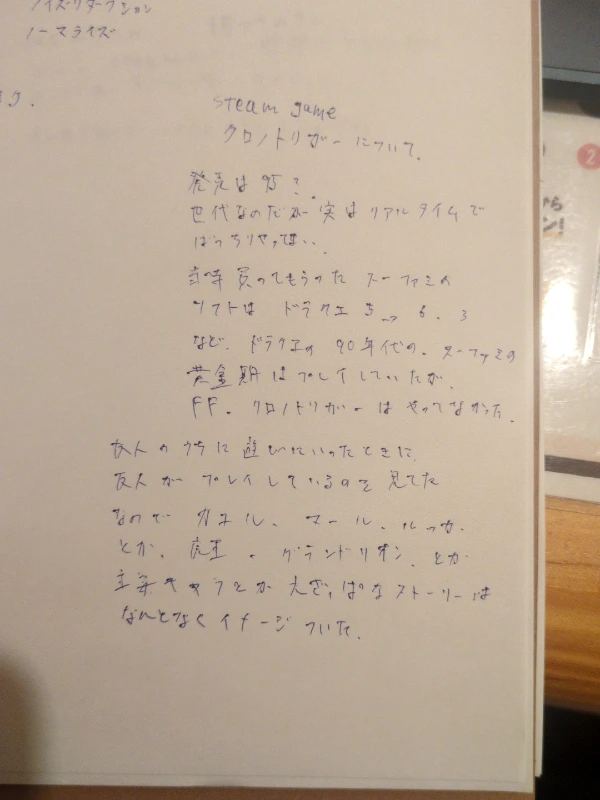 ノイズリダクション
ノーマライズ
steam game
クロノトリガーについて。
発売は95?
世代なのだが実はリアルタイムで
ばっちりやってない。
当時買ってもらったスーファミの
ソフトは ドラクエ5→6.3
など、ドラクエの90年代の、スーファミの
黄金期はプレイしていたが、
FF、クロノトリガーはやってなかった。
友人のうちに遊びにいったときに、
友人がプレイしているのを見てた
なので カエル、マール、ルッカ、
とか、魔王、グランドリオン、とか
主要キャラとか大ざっぱなストーリーは
なんとなくイメージついた。
2